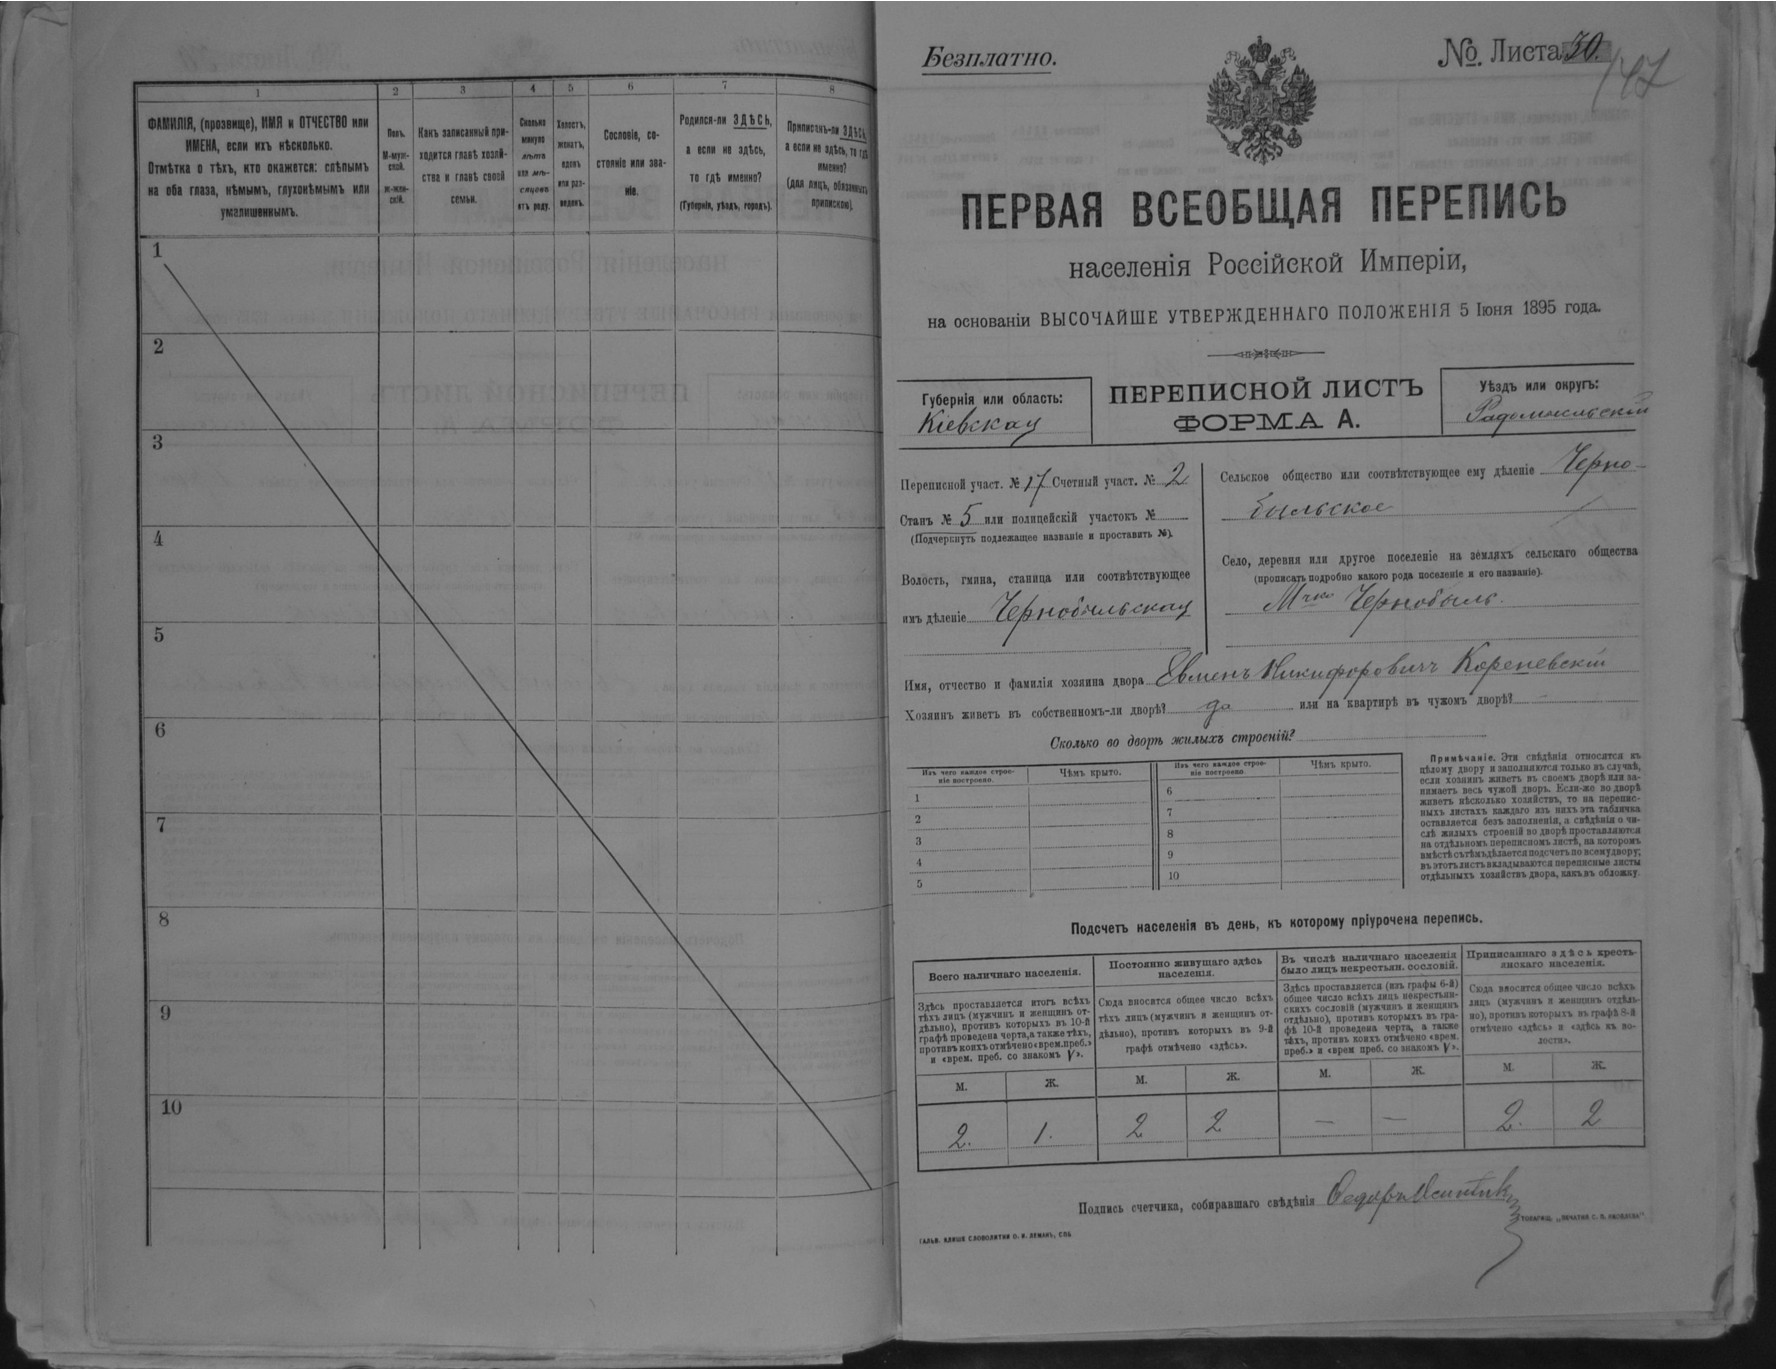 1
2
3
4
5
6
7
8
ФАМИЛІЯ, (прозвище), ИМЯ и ОТЧЕСТВО или
ИМЕНА, если ихъ нѣсколько.
Отмѣтка о тѣхъ, кто окажется: слѣпымъ
на оба глаза, нѣмымъ, глухонѣмымъ или
умалишеннымъ.
Полъ.
М-муж-
ской.
Ж-жен-
скій.
Какъ записанный при-
ходится главѣ хозяй-
ства и главѣ своей
семьи.
Сколько
минуло
лѣтъ
или мѣ-
сяцевъ
отъ роду.
Холостъ,
женатъ,
вдовъ
или раз-
веденъ.
Сословіе, со-
стояніе или зва-
ніе.
Родился-ли ЗДѢСЬ,
а если не здѣсь,
то гдѣ именно?
(Губернія, уѣздъ, городъ).
Приписанъ-ли ЗДѢСЬ,
а если не здѣсь, то гдѣ
именно?
(для лицъ, обязанныхъ
припискою).
1
2
3
4
5
6
7
8
9
10
Безплатно.
№. Листа 30.
147
ПЕРВАЯ ВСЕОБЩАЯ ПЕРЕПИСЬ
населенія Россійской Имперіи,
на основаніи ВЫСОЧАЙШЕ УТВЕРЖДЕННАГО ПОЛОЖЕНІЯ 5 Іюня 1895 года.
Губернія или область:
Кіевская
ПЕРЕПИСНОЙ ЛИСТЪ
ФОРМА А.
Уѣздъ или округъ:
Радомысльскій
Переписной участ. № 17 Счетный участ. № 2
Станъ № 5 или полицейскій участокъ №
(Подчеркнуть подлежащее названіе и проставить №).
Волость, гмина, станица или соотвѣтствующее
имъ дѣленіе Чернобыльская
Сельское общество или соотвѣтствующее ему дѣленіе Черно-
быльское
Село, деревня или другое поселеніе на земляхъ сельскаго общества
(прописать подробно какого рода поселеніе и его названіе).
Мчко Чернобыль.
Имя, отчество и фамилія хозяина двора Евменъ Никифоровичъ Кореневскій
Хозяинъ живетъ въ собственномъ-ли дворѣ? да или на квартирѣ въ чужомъ дворѣ? —
Сколько во дворѣ жилыхъ строеній?
Изъ чего каждое строе-
ніе построено.
Чѣмъ крыто.
Изъ чего каждое строе-
ніе построено.
Чѣмъ крыто.
1
2
3
4
5
6
7
8
9
10
Примѣчаніе. Эти свѣдѣнія относятся къ
цѣлому двору и заполняются только въ случаѣ,
если хозяинъ живетъ въ своемъ дворѣ или за-
нимаетъ весь чужой дворъ. Если-же во дворѣ
живетъ нѣсколько хозяйствъ, то на перепис-
ныхъ листахъ каждаго изъ нихъ эта табличка
оставляется безъ заполненія, а свѣдѣнія о чи-
слѣ жилыхъ строеній во дворѣ проставляются
на отдѣльномъ переписномъ листѣ, на которомъ
вмѣстѣ съ тѣмъ дѣлается подсчетъ по всему двору;
въ этотъ листъ вкладываются переписные листы
отдѣльныхъ хозяйствъ двора, какъ въ обложку.
Подсчетъ населенія въ день, къ которому пріурочена перепись.
Всего наличнаго населенія.
Здѣсь проставляется итогъ всѣхъ
тѣхъ лицъ (мужчинъ и женщинъ от-
дѣльно), противъ которыхъ въ 10-й
графѣ проведена черта, а также тѣхъ,
противъ коихъ отмѣчено «врем. преб.»
и «врем. преб. со знакомъ V».
М.
Ж.
2.
1.
Постоянно живущаго здѣсь
населенія.
Сюда вносится общее число всѣхъ
тѣхъ лицъ (мужчинъ и женщинъ от-
дѣльно), противъ которыхъ въ 9-й
графѣ отмѣчено «здѣсь».
М.
Ж.
2
2
Въ числѣ наличнаго населенія
было лицъ некрестьян. сословій.
Здѣсь проставляется (изъ графы 6-й)
общее число всѣхъ лицъ некрестьян-
скихъ сословій (мужчинъ и женщинъ
отдѣльно), противъ которыхъ въ гра-
фѣ 10-й проведена черта, а также
тѣхъ, противъ коихъ отмѣчено «врем.
преб.» и «врем преб. со знакомъ V».
М.
Ж.
—
—
Приписаннаго здѣсь кресть-
янскаго населенія.
Сюда вносится общее число всѣхъ
лицъ (мужчинъ и женщинъ отдѣль-
но), противъ которыхъ въ графѣ 8-й
отмѣчено «здѣсь» и «здѣсь къ во-
лости».
М.
Ж.
2.
2
Подпись счетчика, собиравшаго свѣдѣнія Федоръ
ГАЛЬВ. КЛИШЕ СЛОВОЛИТНИ О. И. ЛЕМАНЪ, СПБ.
ТОВАРИЩ. „ПЕЧАТНЯ С. П. ЯКОВЛЕВА“